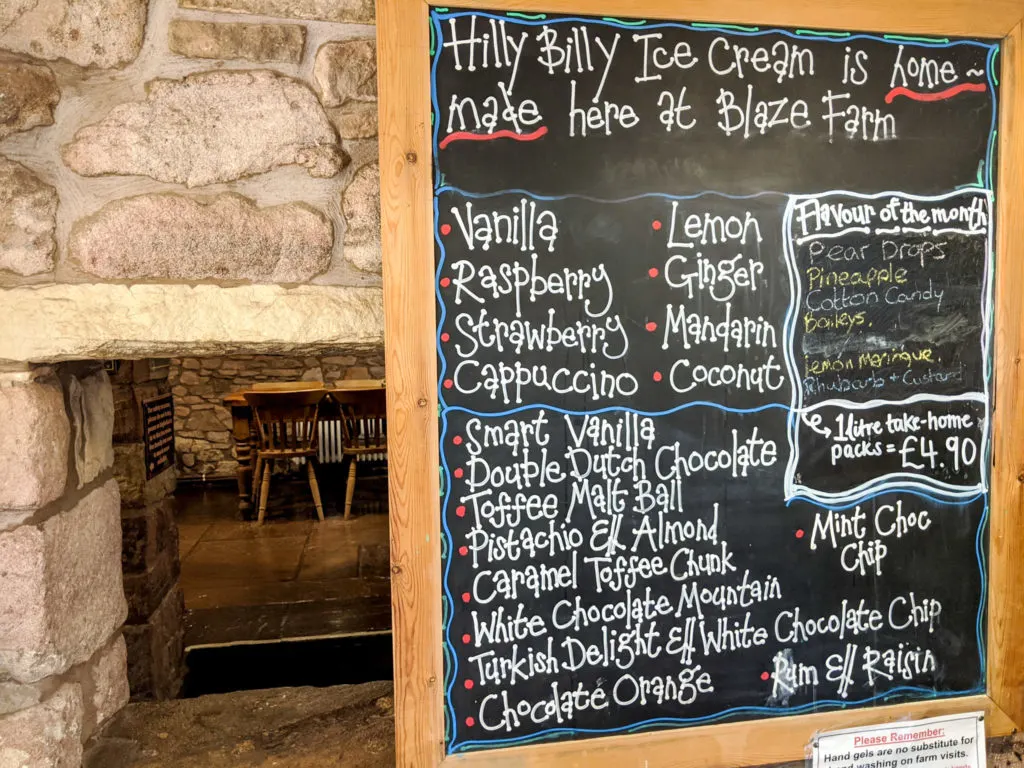 Hilly Billy Ice Cream is home~
made here at Blaze Farm
Vanilla
Raspberry
Strawberry
Cappuccino
Lemon
Ginger
Mandarin
Coconut
Flavour of the month
Pear Drops
Pineapple
Cotton Candy
Baileys.
Lemon Meringue.
Rhubarb + Custard
1 litre take-home
packs = £4.90
Smart Vanilla
Double Dutch Chocolate
Toffee Malt Ball
Pistachio & Almond
Caramel Toffee Chunk
White Chocolate Mountain
Turkish Delight & White Chocolate Chip
Chocolate Orange
Mint Choc
Chip
Rum & Raisin
Please Remember:
Hand gels are no substitute for
hand washing on farm visits.